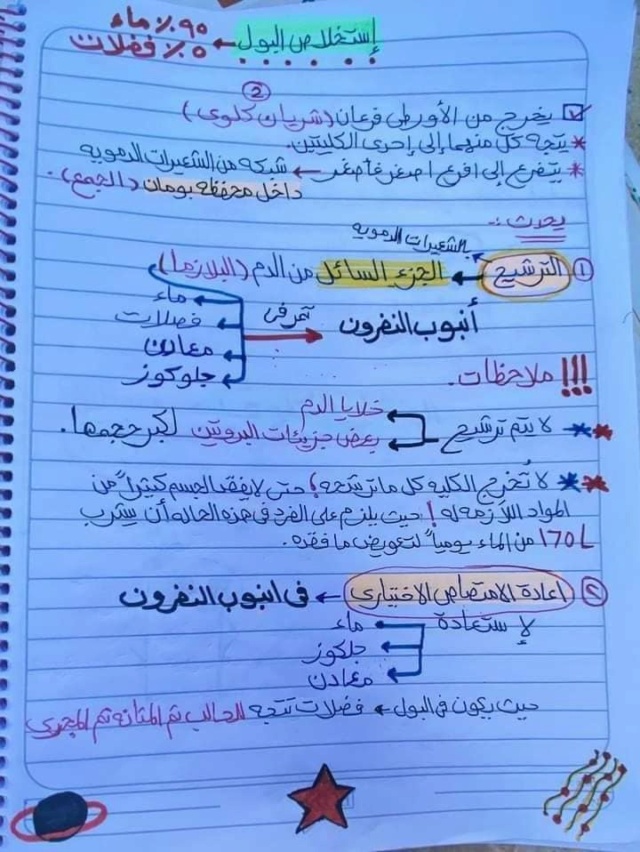 إستخلاص البول ← ٩٥٪ ماء
٥٪ فضلات
☑ يخرج من الأورطى فرعان (شريان كلوى) ②
* يتجه كل منهما إلى إحرى الكليتين.
* يتفرع إلى افرع اصغر فأصغر ← شبكه من الشعيرات الدمويه
داخل محفظه بومان (الجمع).
يحدث:-
بالشعيرات الدمويه
① الترشيح ← الجزء السائل من الدم (البلازما)
ماء
فضلات
معادن
جلوكوز
تمر فى → أنبوب النفرون
!!! ملاحظات.
** لا يتم ترشيح ← خلايا الدم
بعض جزيئات البروتين لكبر حجمها.
** لا تُخرج الكليه كل ما ترشحه؟ حتى لا يفقد الجسم كثيراً من
المواد اللازمه له! حيث يلزم على الفرد فى هذه الحاله أن يشرب
170L من الماء يومياً لتعويض ما فقده.
② اعادة الامتصاص الاختيارى ← فى انبوب النفرون
لإستعادة ← ماء
جلكوز
معادن
حيث يكون فى البول ← فضلات تتجه للحالب ثم المثانه ثم المجرى